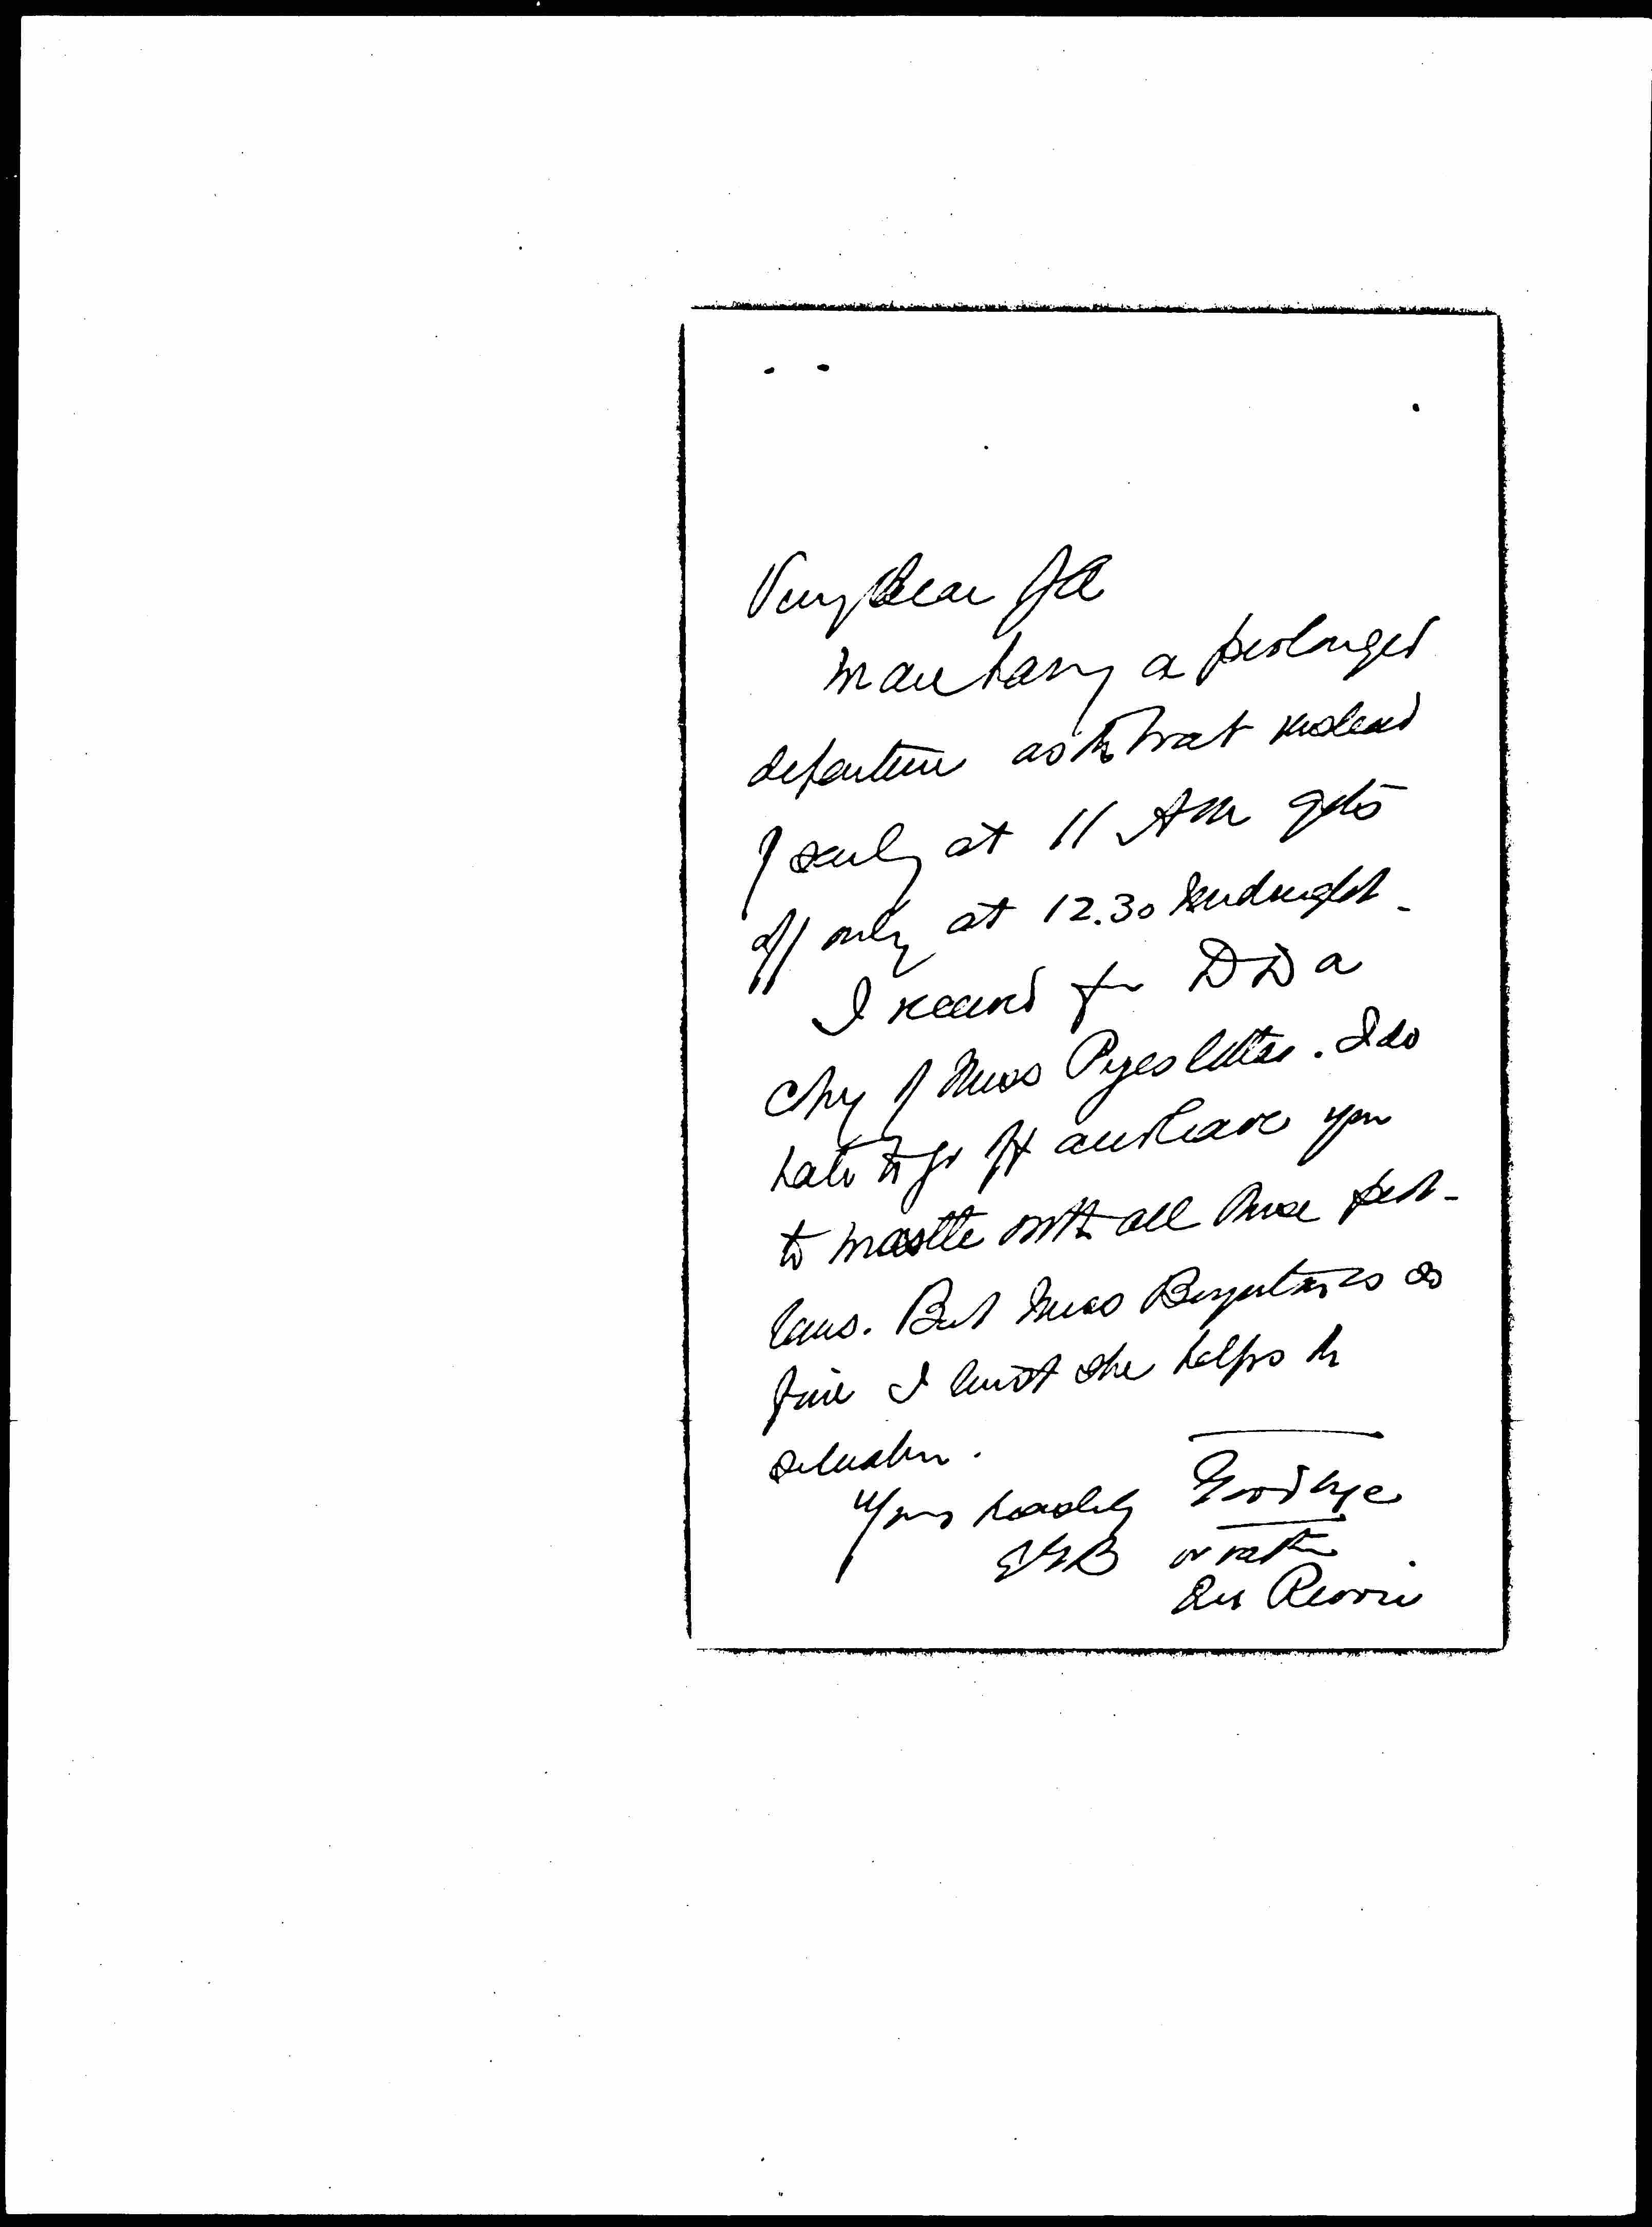 Very dear JA
We are having a prolonged
departure as the boat instead
of early at 11 AM gets
off only at 12.30 midnight -
I received from DD a
copy of Miss Pyes letter. I do
hate to go off and leave you
to wrestle with all these prob-
lems. But Miss is so
fine I trust she helps the
situation.
Yours
EGB
Goodbye
or rather
Au Revoir